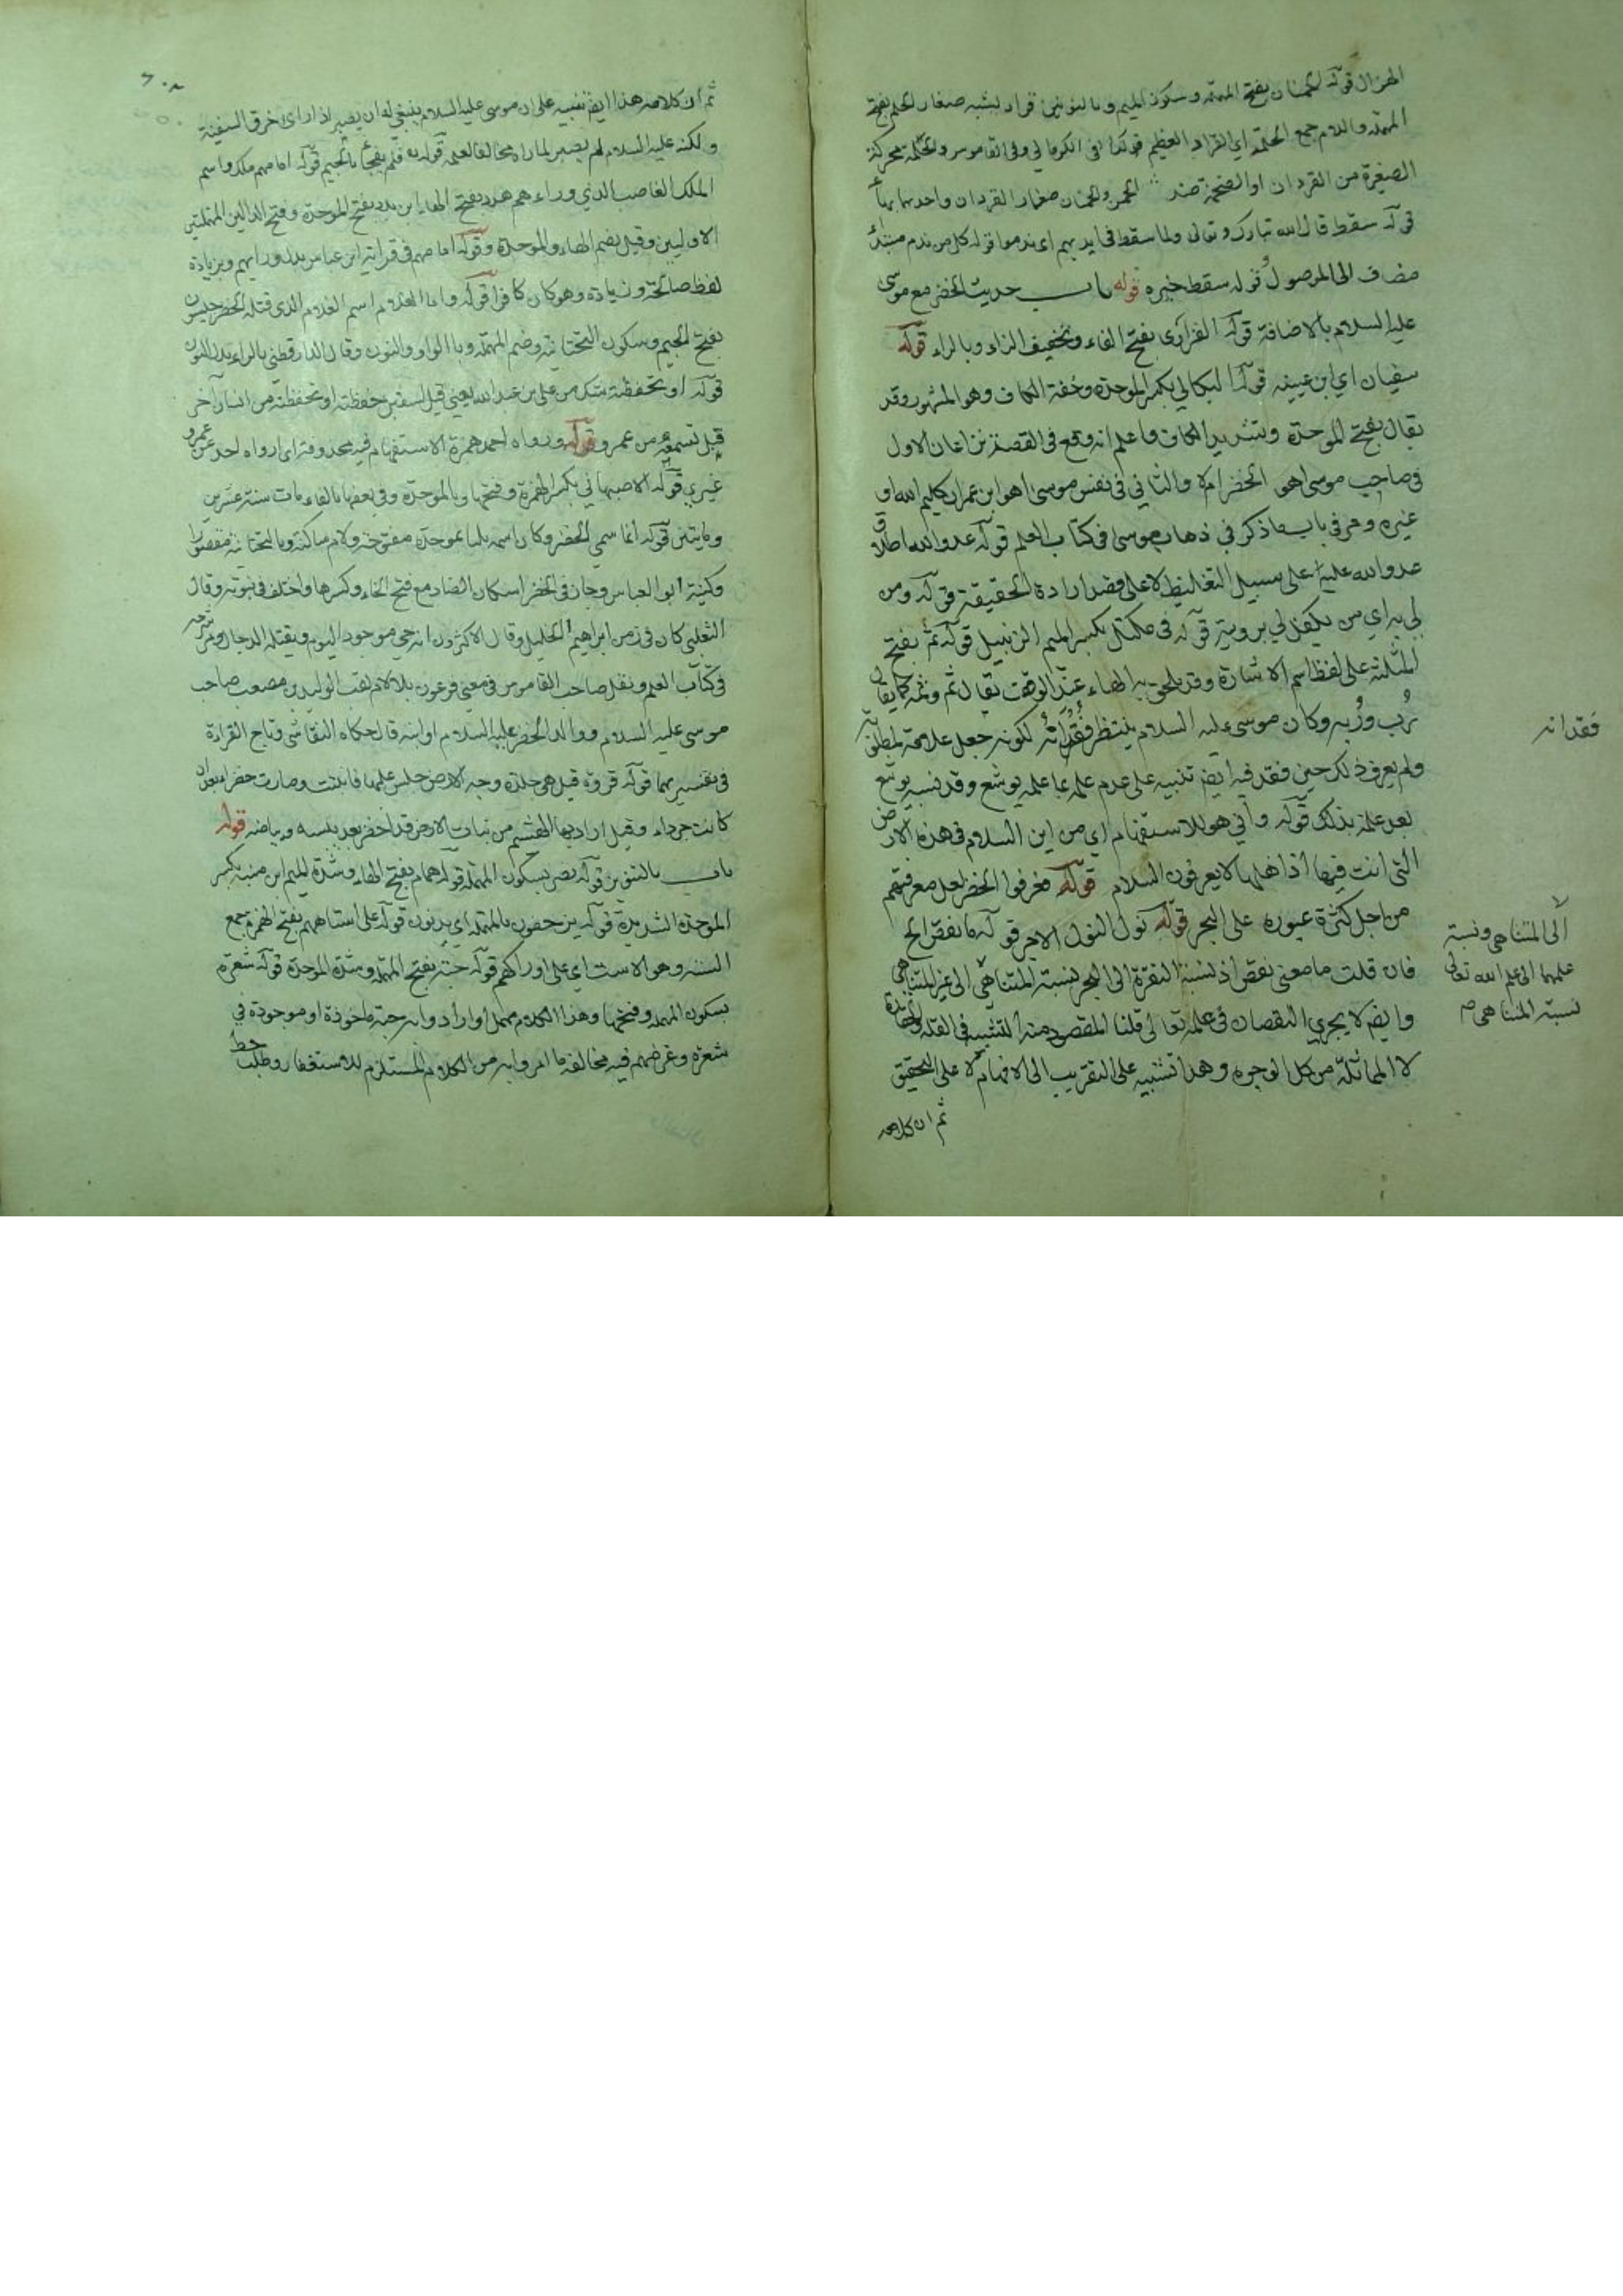 الهزال قوله الحمنان بفتح المهملة وسكون الميم وبالنونين قراد يشبه صغار الحلم بفتح
المهملة واللام جمع الحلمة اي القراد العظيم كذا في الكرماني وفي القاموس والحلمة محركة
الصغيرة من القردان او الضخمة ضد الحمن والحمنان صغار القردان واحدهما بهاء
قوله سقط قال الله تبارك وتعالى ولما سقط في ايديهم اي ندموا قوله كل من ندم مبتدأ
مضاف الى الموصول قوله سقط خبره قوله باب حديث الخضر مع موسى
عليه السلام بالاضافة قوله الفزاري بفتح الفاء وتخفيف الزاء وبالراء قوله
سفيان اي ابن عيينه قوله البكالي بكسر الموحدة وخفة الكاف وهو المشهور وقد
يقال بفتح الموحدة وبتشديد الكاف واعلم انه وقع في القصة نزاعان الاول
في صاحب موسى اهو الخضر ام لا والثاني في نفس موسى اهو ابن عمران كليم الله او
غيره ومر في باب ما ذكر في ذهاب موسى في كتاب العلم قوله عدو الله اطلاق
عدو الله عليه على سبيل التغليظ لا على قصد ارادة الحقيقة قوله ومن
لي به اي من يكفل لي برويته قوله في مكتل بكسر الميم الزنبيل قوله ثم بفتح
المثلثة على لفظ اسم الاشارة وقد يلحق به الهاء عند الوقف يقال ثم وثمه كما يقال
رب وربه وكان موسى عليه السلام ينتظر فقدانه لكونه جعل علامة لمطلوبه
فقدانه
ولم يعرف ذلك حين فقد فيه ايضا تنبيه على عدم علمه بما علمه يوشع وقد نسيه يوشع
بعد علمه بذلك قوله واني هو للاستفهام اي من اين السلام في هذه الارض
التي انت فيها اذ اهلها لا يعرفون السلام قوله فعرفوا الخضر لعل معرفتهم
من اجل كثرة عبوره على البحر قوله نول النول الاجر قوله ما نقص الخ
فان قلت ما معنى نقص اذ نسبة النقرة الى البحر نسبة المتناهي الى غير المتناهي
الى المتناهي ونسبة
علمهما الى علم الله تعالى
نسبة المتناهي صح
وايضا لا يجري النقصان في علمه تعالى قلنا المقصود منه التشبيه في القلة والحقارة
لا المماثلة من كل الوجوه وهذا تشبيه على التقريب الى الافهام لا على التحقيق
ثم ان كلامه
٢٠٨
ثم ان كلامه هذا ايضا تنبيه على ان موسى عليه السلام ينبغي له ان يصبر اذا راى خرق السفينة
ولكنه عليه السلام لم يصبر لما راه مخالفا لعلمه قوله فلم يفجأ بالجيم قوله امامهم ملك واسم
الملك الغاصب الذي وراءهم هدد بفتح الهاء ابن بدد بفتح الموحدة وفتح الدالين المهملتين
الاوليين وقيل بضم الهاء والموحدة وقوله امامهم في قراءة ابن عباس بدل وراءهم وبزيادة
لفظ صالحة وزيادة وهو كان كافرا قوله واما الغلام اسم الغلام الذي قتله الخضر جيسون
بفتح الجيم وسكون التحتانية وضم المهملة وبالواو والنون وقال الدارقطني بالراء بدل النون
قوله او تحفظته شك من علي بن عبد الله يعني قيل لسفين حفظته او تحفظته من انسان آخر
قبل تسمعه من عمرو قوله ورواه احد همزة الاستفهام فيه محذوفة اي ارواه احد عن عمرو
غيري قوله الاصبهاني بكسر الهمزة وفتحها وبالموحدة وفي بعضها بالفاء مات سنة عشرين
ومايتين قوله انما سمي الخضر وكان اسمه بليا بموحدة مفتوحة ولام ساكنة وبالتحتانية مقصورا
وكنيته ابو العباس وجاز في الخضر اسكان الضاد مع فتح الخاء وكسرها واختلف في نبوته وقال
الثعلبي كان في زمن ابراهيم الخليل وقال الاكثرون انه حي موجود اليوم ويقتله الدجال ومر شرحه
في كتاب العلم ونقل صاحب القاموس في معنى فرعون بلا لام لقب الوليد بن مصعب صاحب
موسى عليه السلام ووالد الخضر عليه السلام او ابنه قال حكاه النقاش وتاج القراءة
في تفسيرهما قوله فروة قيل هي جلدة وجه الارض جلس عليها فانبتت وصارت خضراء بعد ان
كانت جرداء وقيل اراد بها الهشيم من نبات الارض قد اخضر بعد يبسه وبياضه قوله
باب بالتنوين قوله نصر بسكون المهملة قوله همام بفتح الهاء وشدة الميم ابن منبه بكسر
الموحدة الشديدة قوله يزحفون بالمهملة اي يدنون قوله على استاههم بفتح الهمزة جمع
السته وهو الاست اي على اوراكهم قوله حبة بفتح المهملة وشدة الموحدة قوله شعرة
بسكون المهملة وفتحها وهذا الكلام مهمل او ارادوا به حبة ماخوذة او موجودة في
شعرة وغرضهم فيه مخالفة ما امروا به من الكلام المستلزم للاستغفار وطلب حط